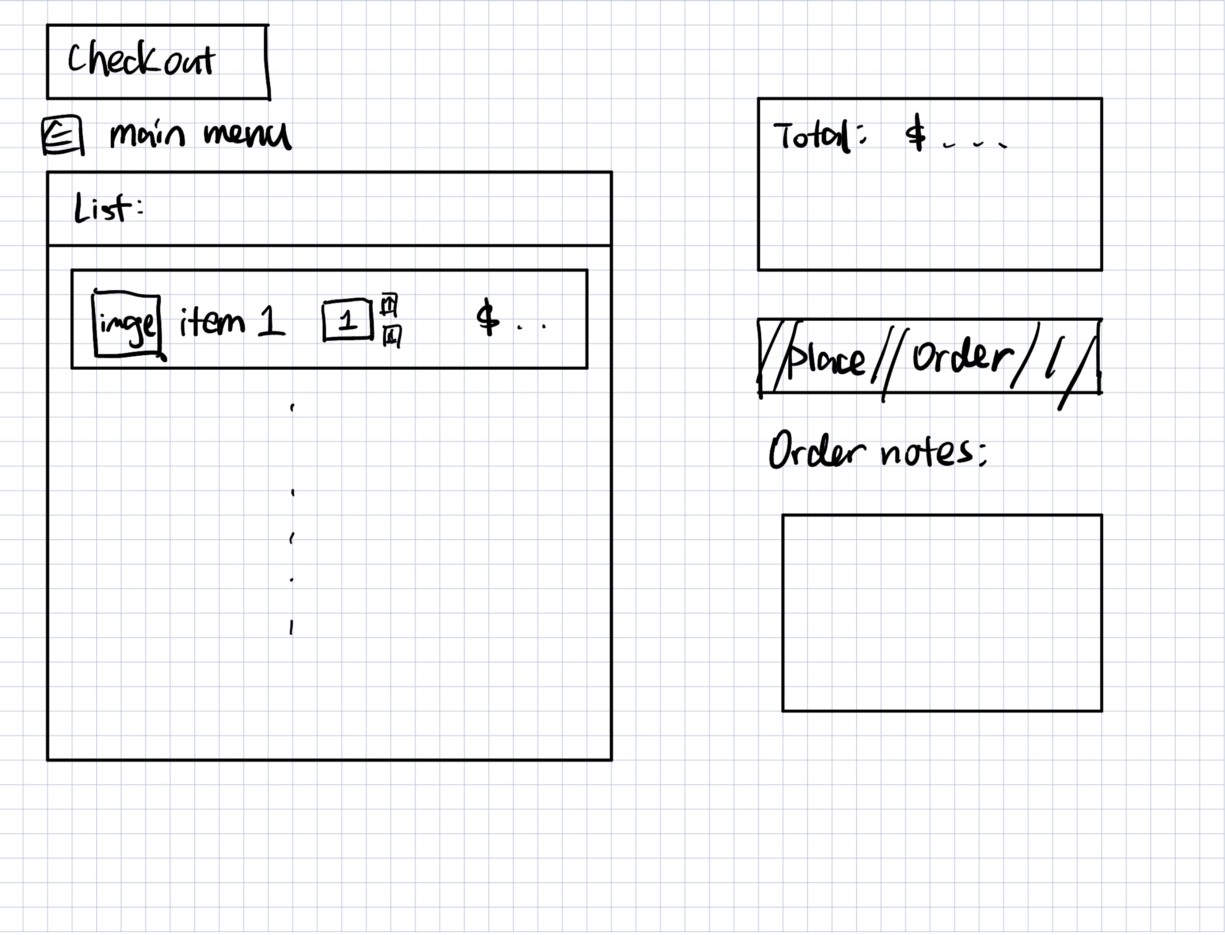 Checkout
main menu
List:
imge item 1 1 $ . .
Total: $ . . .
Place Order
Order notes: